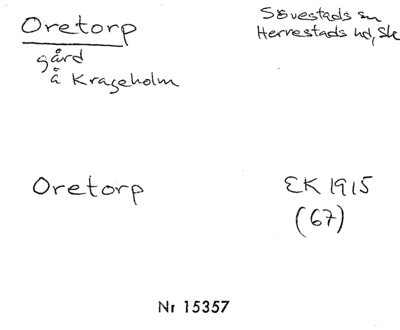 Oretorp
Sövestads sn
Herrestads hd, Sk
gård
å Krageholm
Oretorp
EK 1915
(67)
Nr 15357